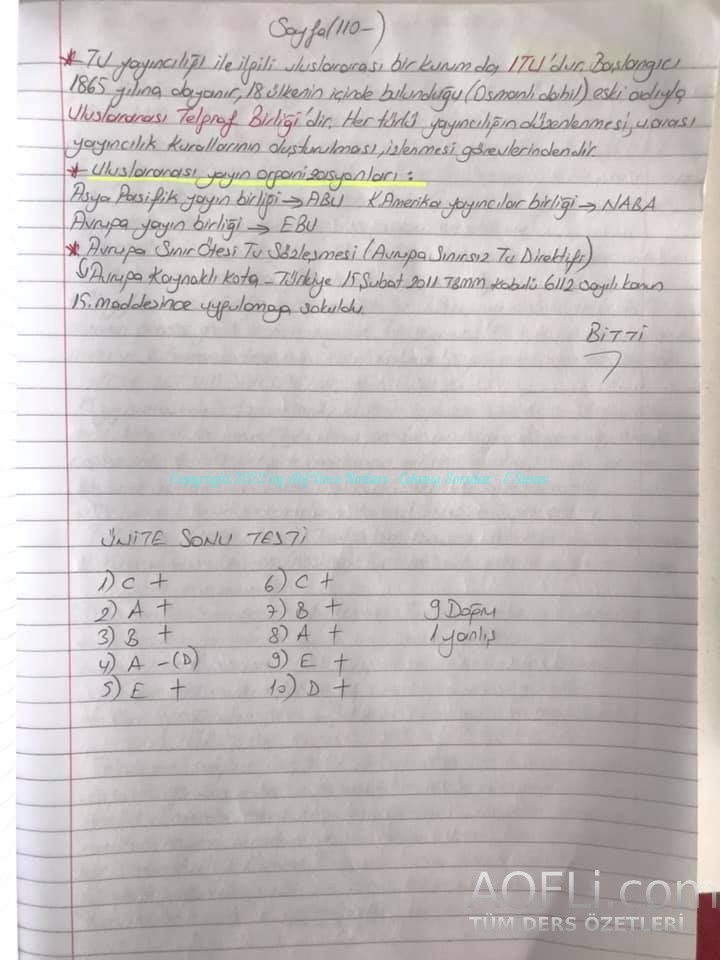 Sayfa(110-)
* TV yayıncılığı ile ilgili uluslararası bir kurum da, ITU'dur. Başlangıcı
1865 yılına dayanır, 18 ülkenin içinde bulunduğu (Osmanlı dahil) eski adıyla
Uluslararası Telgraf Birliği'dir. Her türlü yayıncılığın düzenlenmesi, u.arası
yayıncılık kurallarının oluşturulması, izlenmesi görevlerindendir.
* Uluslararası yayın organizasyonları:
Asya Pasifik yayın birliği → ABU K.Amerika yayıncılar birliği → NABA
Avrupa yayın birliği → EBU
* Avrupa Sınır Ötesi TV Sözleşmesi (Avrupa Sınırsız TV Direktifi)
Avrupa Kaynaklı Kota - Türkiye 15 Şubat 2011 TBMM kabulü 6112 sayılı kanun
15. maddesince uygulamaya sokuldu.
BİTTİ
ÜNİTE SONU TESTİ
1) C + 6) C +
2) A + 7) B + 9 Doğru
3) B + 8) A + 1 yanlış
4) A -(D) 9) E +
5) E + 10) D +
AOFLi.com
TÜM DERS ÖZETLERİ